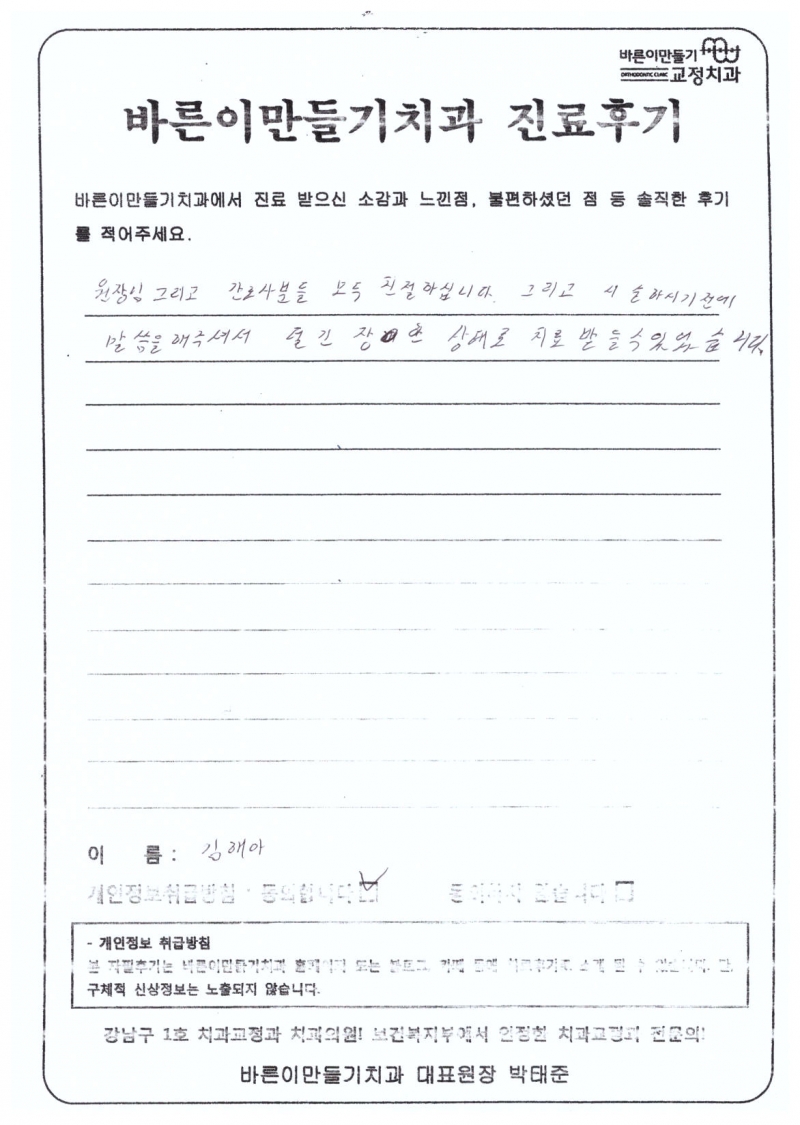 바른이만들기
ORTHODONTIC CLINIC 교정치과
바른이만들기치과 진료후기
바른이만들기치과에서 진료 받으신 소감과 느낀점, 불편하셨던 점 등 솔직한 후기
를 적어주세요.
원장님 그리고 간호사분들 모두 친절하십니다. 그리고 시술하시기전에
말씀을해주셔서 덜 긴장한 상태로 치료 받을수있었습니다.
이 름 : 김해아
개인정보취급방침 · 동의합니다 동의하지 않습니다
- 개인정보 취급방침
본 자필후기는 바른이만들기치과 홈페이지 또는 블로그, 카페 등에 치료후기로 소개 될 수 있습니다. 단,
구체적 신상정보는 노출되지 않습니다.
강남구 1호 치과교정과 치과의원! 보건복지부에서 인정한 치과교정과 전문의!
바른이만들기치과 대표원장 박태준